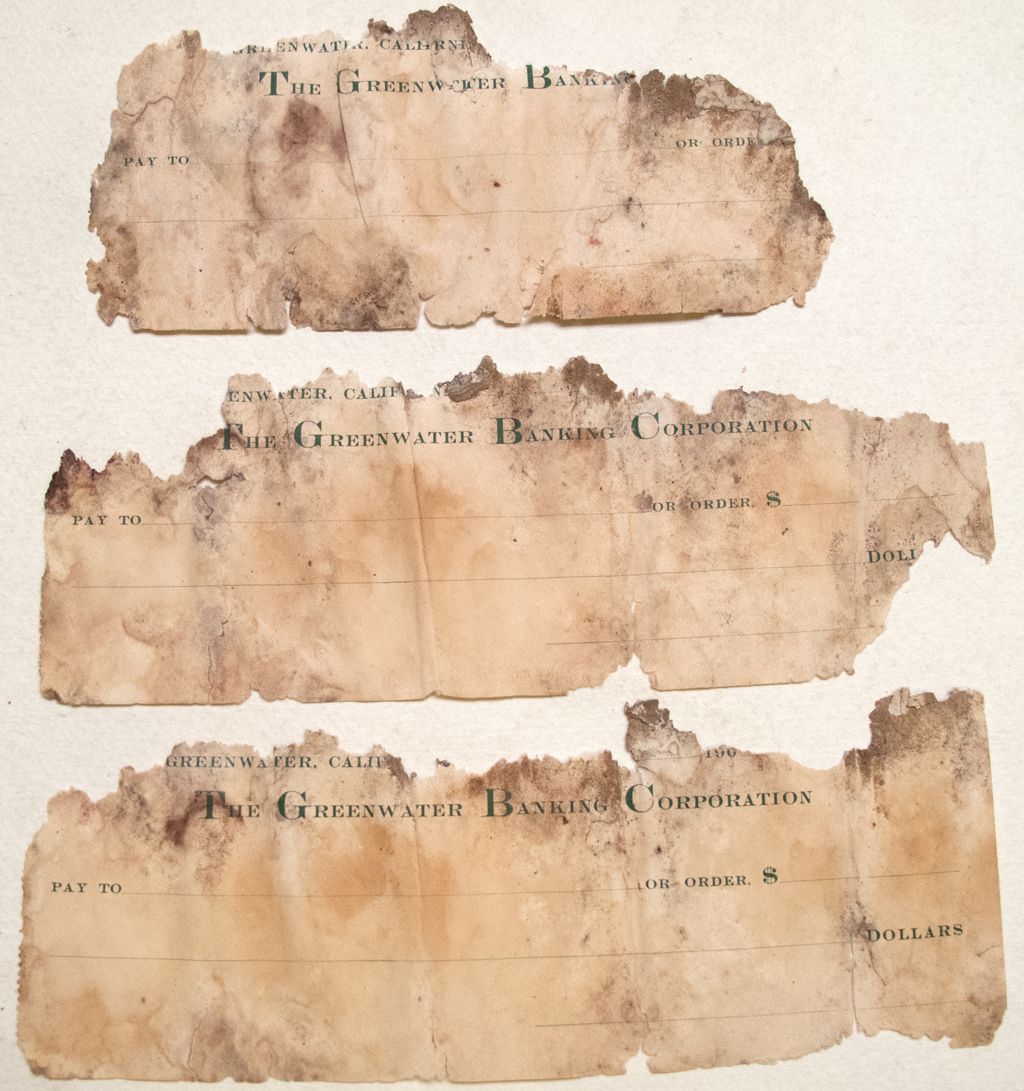 GREENWATER, CALIFRNI
THE GREENWATER BANKING
PAY TO OR ORDE
ENWATER, CALIF N
THE GREENWATER BANKING CORPORATION
PAY TO OR ORDER, $
DOLL
GREENWATER, CALIF 190
THE GREENWATER BANKING CORPORATION
PAY TO OR ORDER, $
DOLLARS